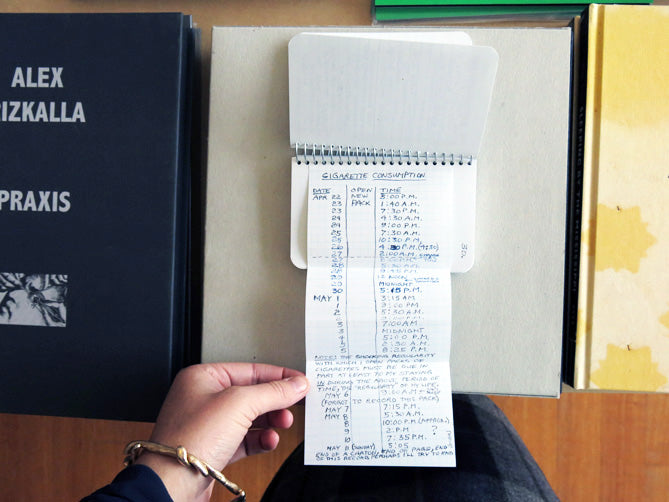 ALEX
RIZKALLA
PRAXIS
CIGARETTE CONSUMPTION
DATE OPEN TIME
APR 22 NEW 8:00 P.M.
23 PACK 1:40 A.M.
23 7:30 P.M.
24 4:30 A.M.
24 9:00 P.M.
25 7:30 A.M.
25 10:30 P.M.
26 4:30 P.M. (4:30)
27 2:00 A.M.
28 5:30 A.M.
28 9:45 P.M.
29 12 NOON
29 MIDNIGHT
30 5:15 P.M.
MAY 1 3:15 A.M.
1 9:00 PM
2 5:30 A.M.
3 7:00 AM
3 MIDNIGHT
4 5:00 P.M.
5 2:30 A.M.
5 8:25 P.M.
NOTE: THE SHOCKING REGULARITY
WITH WHICH I OPEN PACKS OF
CIGARETTES MUST BE DUE IN
PART AT LEAST TO MY STAYING
IN DURING THE ABOVE PERIOD OF
TIME, THE "REGULARITY" OF MY LIFE.
MAY 6 9:00 A.M.
(FORGOT TO RECORD THIS PACK)
MAY 7 7:15 P.M.
MAY 8 5:30 A.M.
8 10:00 P.M. (APPROX.)
9 2: P.M ?
10 7:35 P.M.
MAY 11 (SUNDAY) 5:05
END OF PAGE, END
OF THIS RECORD PERHAPS I'LL TRY TO END